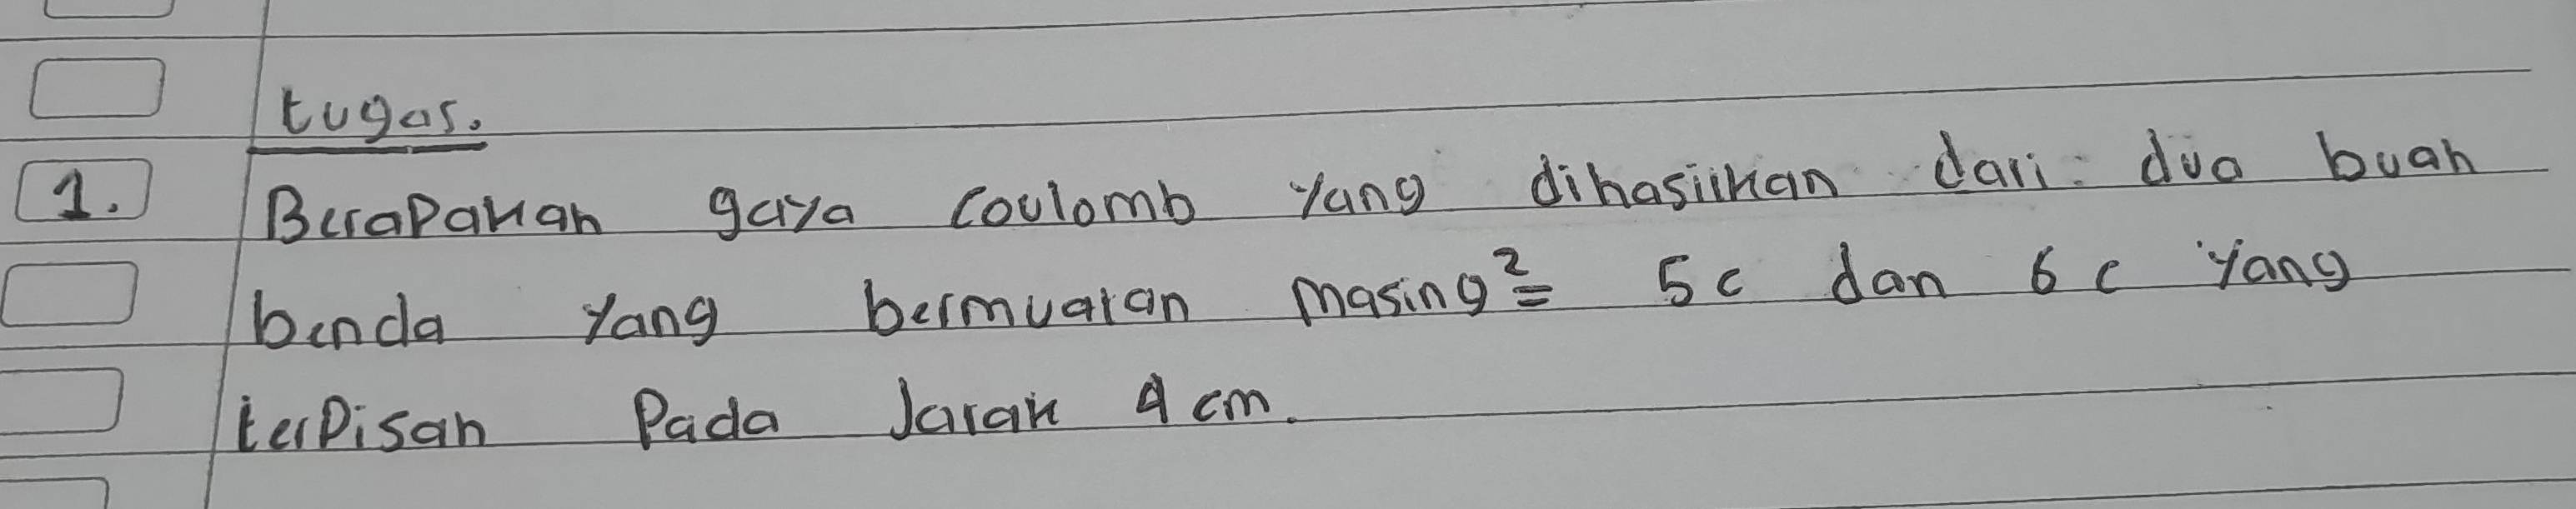 tugas.
1. Berapakah gaya coulomb yang dihasilkan dari dua buah
benda yang bermuatan masing² = 5 c dan 6 c yang
terpisah pada Jarak 4 cm.